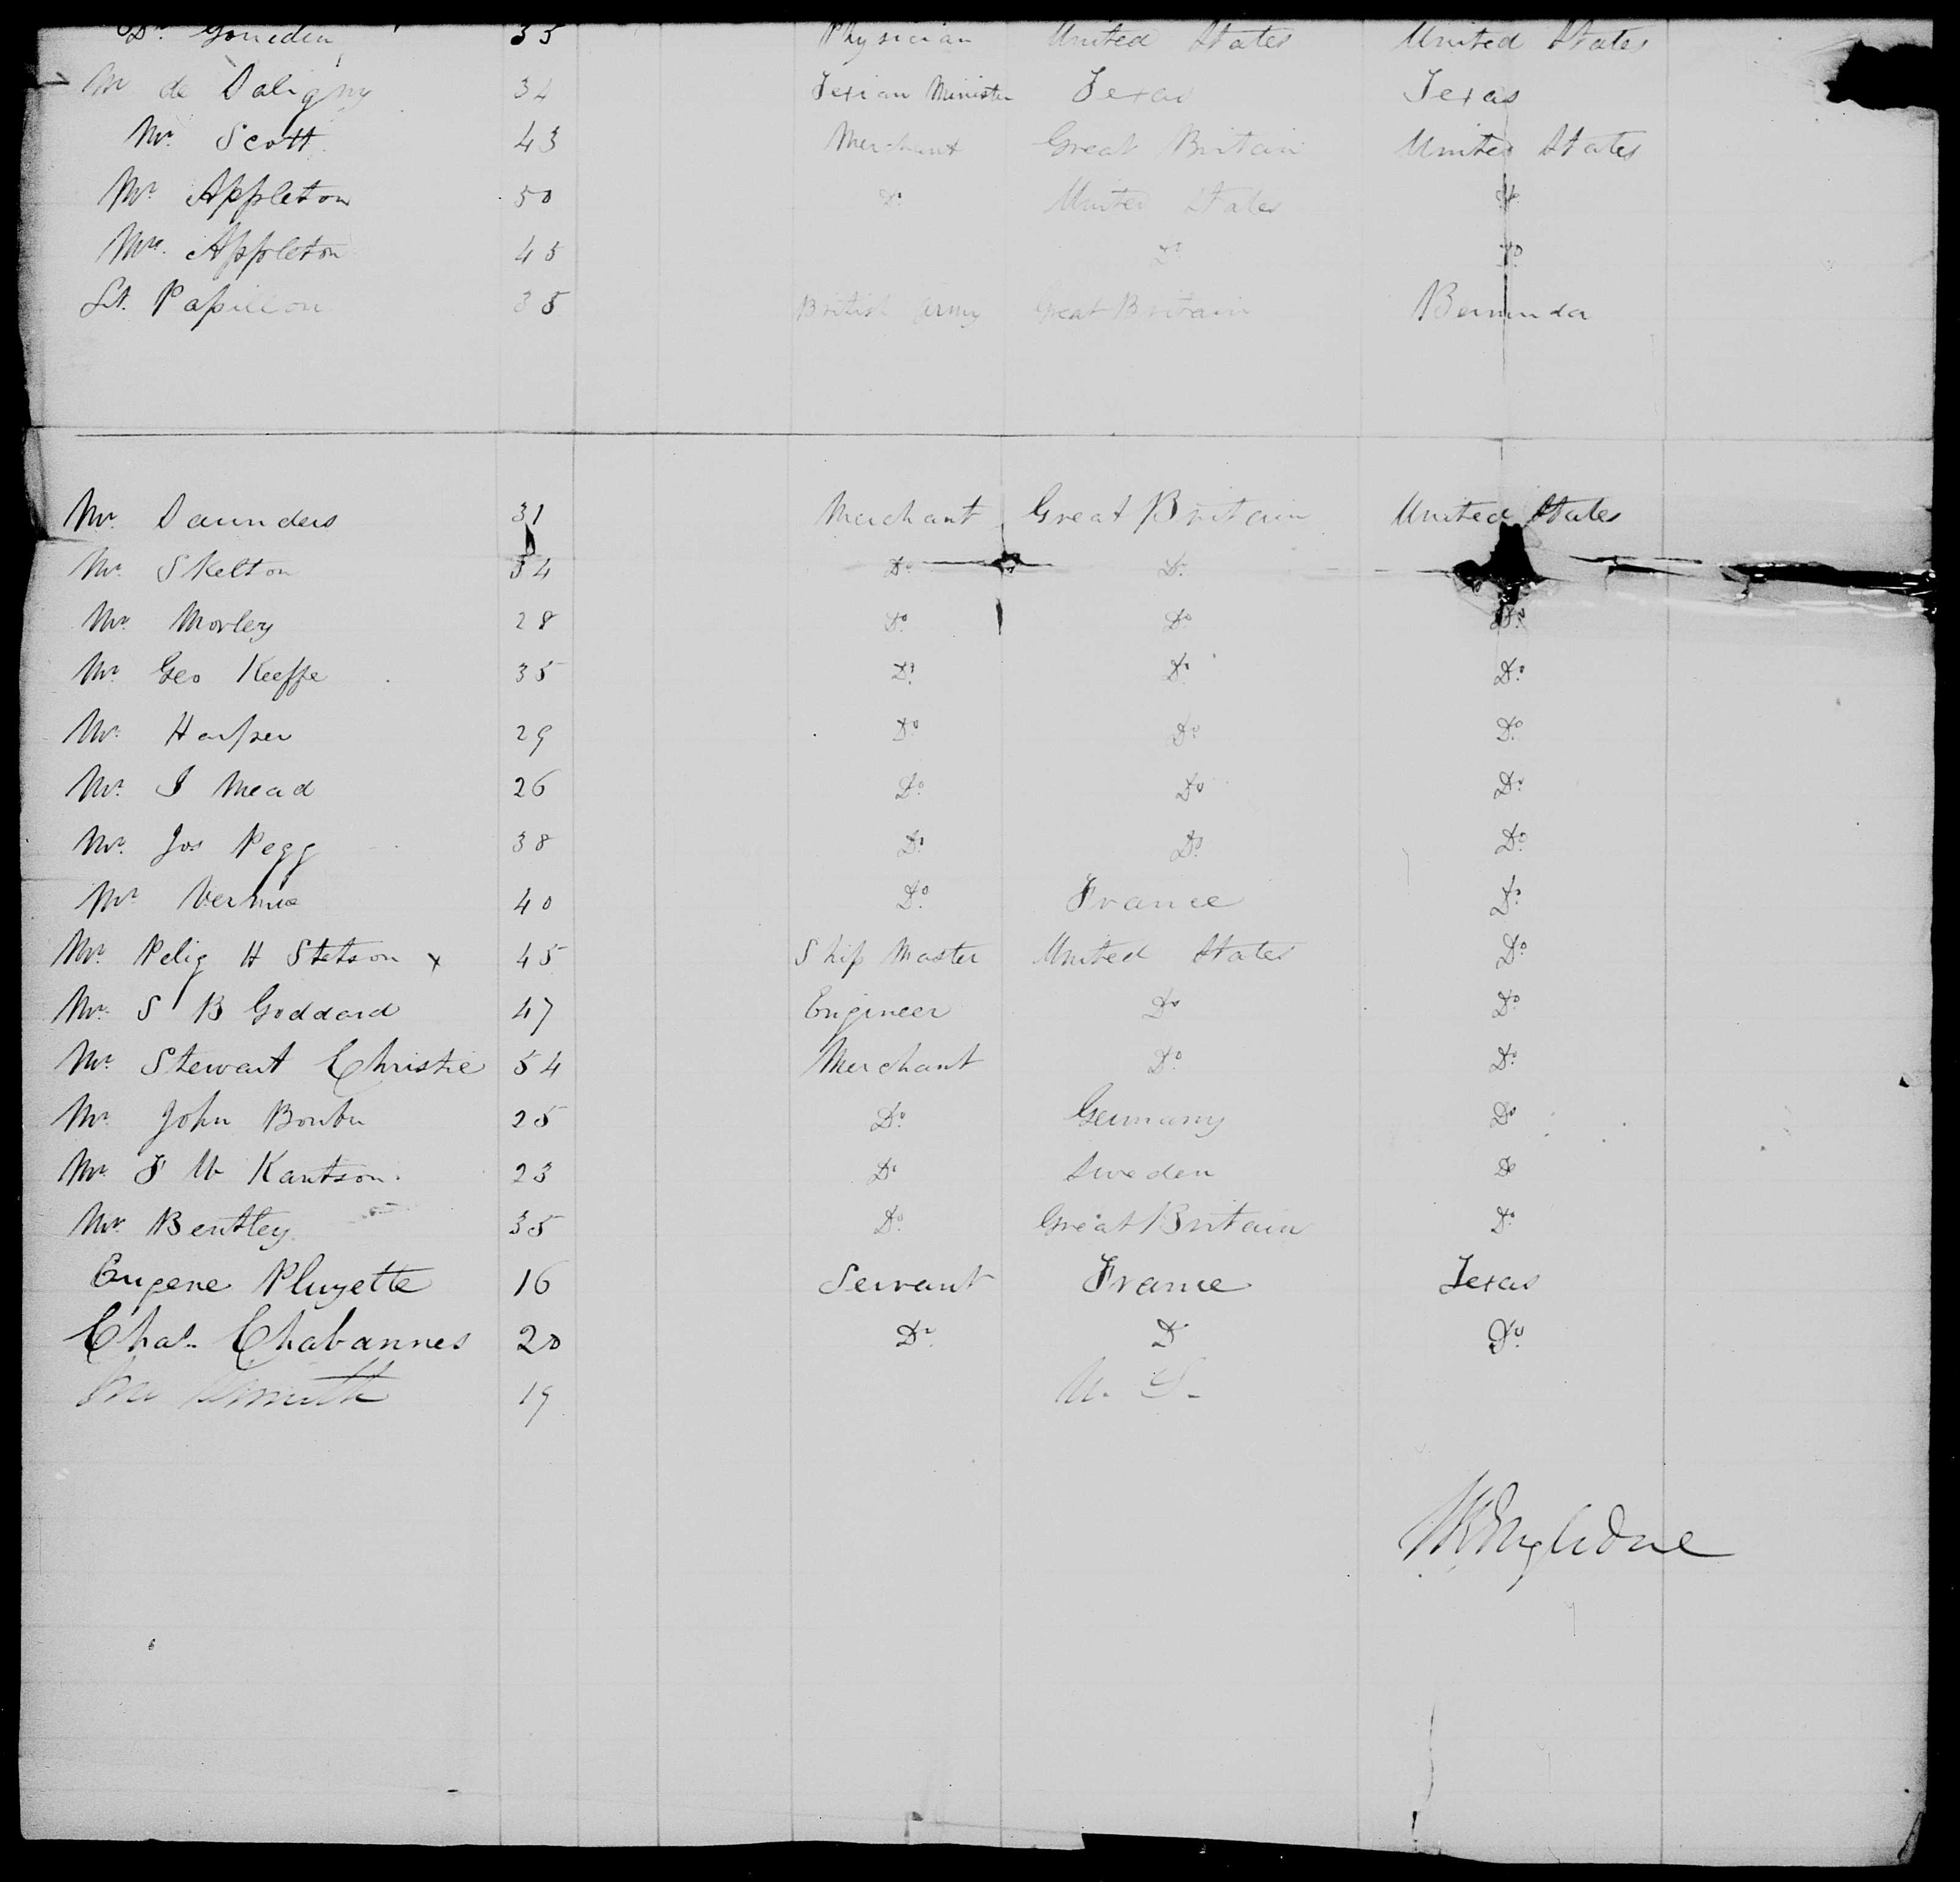 Dr. Gouedin 35 Physician United States United States
Mr de Saligny 34 Texian Minister Texas Texas
Mr. Scott 43 Merchant Great Britain United States
Mr. Appleton 50 Do United States Do
Mrs. Appleton 45 Do Do
Lt. Papillon 35 British Army Great Britain Bermuda
Mr. Saunders 31 Merchant Great Britain United States
Mr. Skelton 34 Do Do
Mr. Morley 28 Do Do Do
Mr. Geo Keeffe 35 Do Do Do
Mr. Harper 29 Do Do Do
Mr. J Mead 26 Do Do Do
Mr. Jos Pegg 38 Do Do Do
Mr. 40 Do France Do
Mr. Pelig H Stetson x 45 Ship Master United States Do
Mr. S B Goddard 47 Engineer Do Do
Mr. Stewart Christie 54 Merchant Do Do
Mr. John 25 Do Germany Do
Mr. F W Kantson. 23 Do Sweden Do
Mr. Bentley 35 Do Great Britain Do
Eugene Pluyette 16 Servant France Texas
Chas. Chabannes 20 Do Do Do
19 U. S.